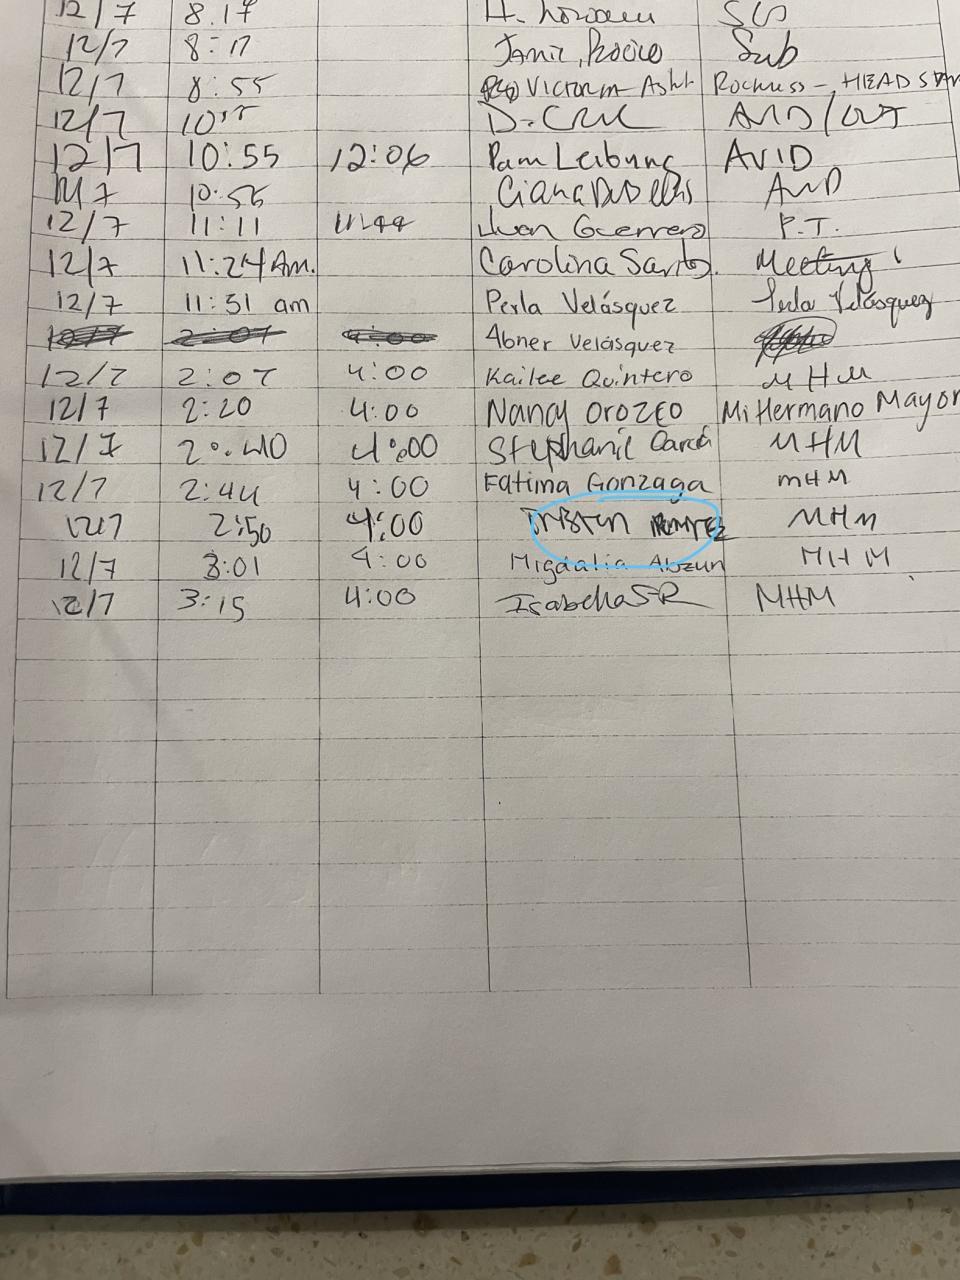 12/7 8:17 H.
12/7 8:17 Sub
12/7 8:55 Victoria Rockness - HEAD START
12/7 D. Cruz AVID/
12/7 10:55 12:06 Pam Leibung AVID
12/7 10:55 Ciana AVID
12/7 11:11 11:44 Juan Guerrero P.T.
12/7 11:24 Am. Carolina Santos. Meeting
12/7 11:51 am Perla Velásquez Perla Velásquez
Abner Velásquez
12/7 2:07 4:00 Kailee Quintero MHM
12/7 2:20 4:00 Nancy Orozco Mi Hermano Mayor
12/7 2:40 4:00 Stephanie Garcia MHM
12/7 2:44 4:00 Fatima Gonzaga mHM
12/7 2:50 4:00 MHM
12/7 3:01 4:00 Migdalia Abzun MHM
12/7 3:15 4:00 Isabella SR MHM